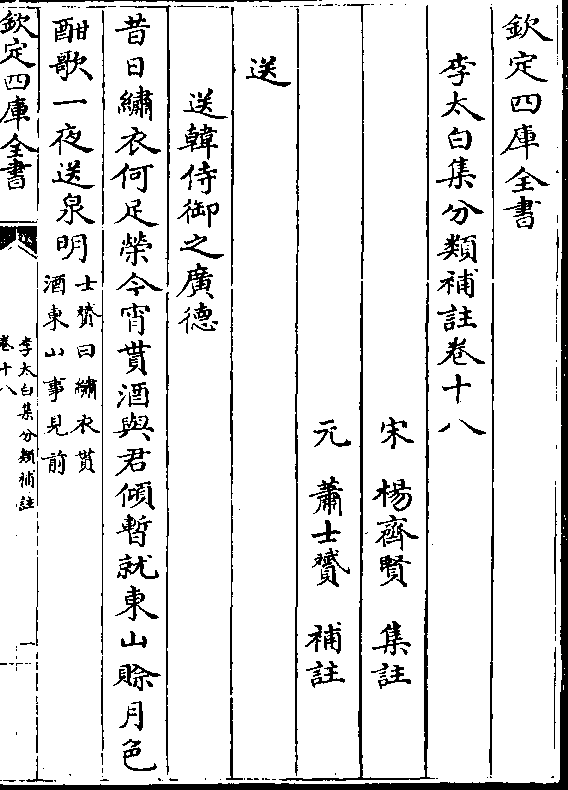 欽定四庫全書
李太白集分類補註卷十八
宋 楊齊賢 集註
元 蕭士贇 補註
送
送韓侍御之廣德
昔日繡衣何足榮今宵貰酒與君傾暫就東山賒月色
酣歌一夜送泉明
士贇曰繡衣貰
酒東山事見前
欽定四庫全書
李太白集分類補註
卷十八
一